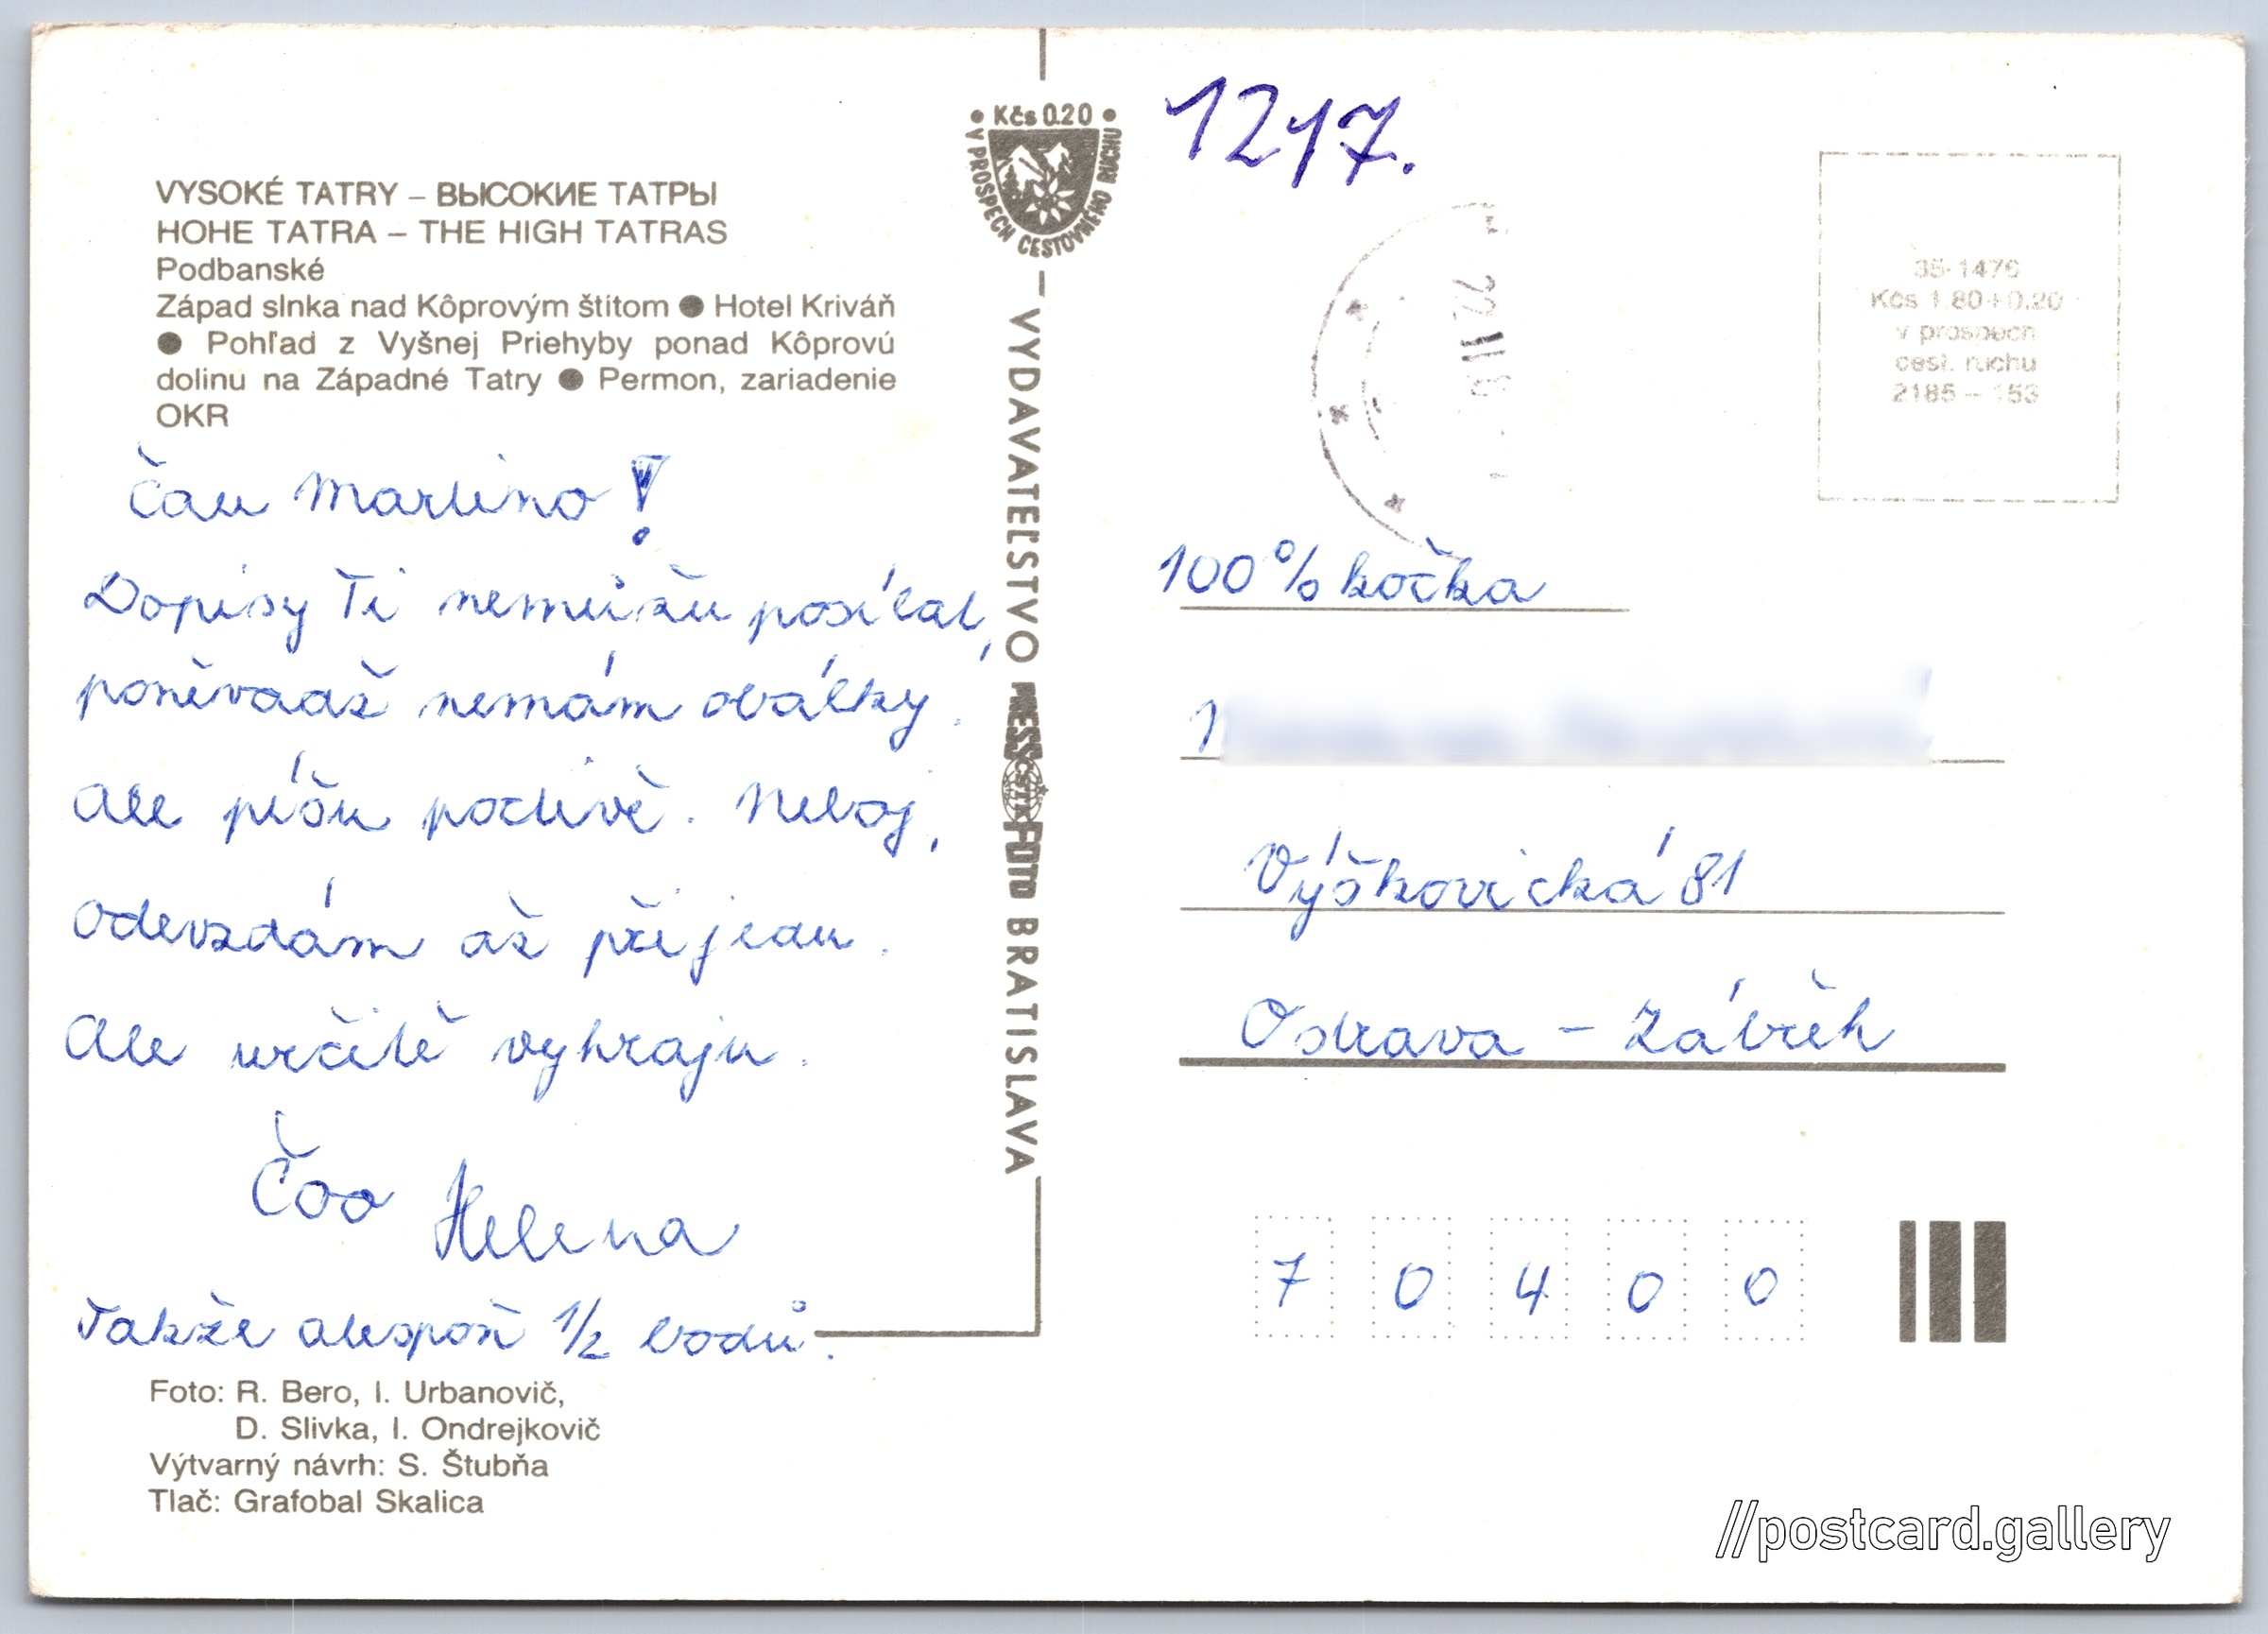 VYSOKÉ TATRY – ВЫСОКИЕ ТАТРЫ
HOHE TATRA – THE HIGH TATRAS
Podbanské
Západ slnka nad Kôprovým štítom ● Hotel Kriváň
● Pohľad z Vyšnej Priehyby ponad Kôprovú
dolinu na Západné Tatry ● Permon, zariadenie
OKR
Čau Martino!
Dopisy Ti nemůžu posílat,
poněvadž nemám obálky.
Ale píšu poctivě. Neboj,
odevzdám až přijedu.
Ale určitě vyhraju.
Čoo Helena
Takže alespoň 1/2 bodů.
Foto: R. Bero, I. Urbanovič,
D. Slivka, I. Ondrejkovič
Výtvarný návrh: S. Štubňa
Tlač: Grafobal Skalica
• Kčs 0.20 •
V PROSPECH CESTOVNÉHO RUCHU
VYDAVATEĽSTVO PRESSFOTO BRATISLAVA
ČSTK
1217.
22. II. 8
35-1476
Kčs 1.80+0.20
v prospech
cest. ruchu
2185 – 153
100% kočka
Výškovická 81
Ostrava – Zábřeh
7 0 4 0 0
//postcard.gallery